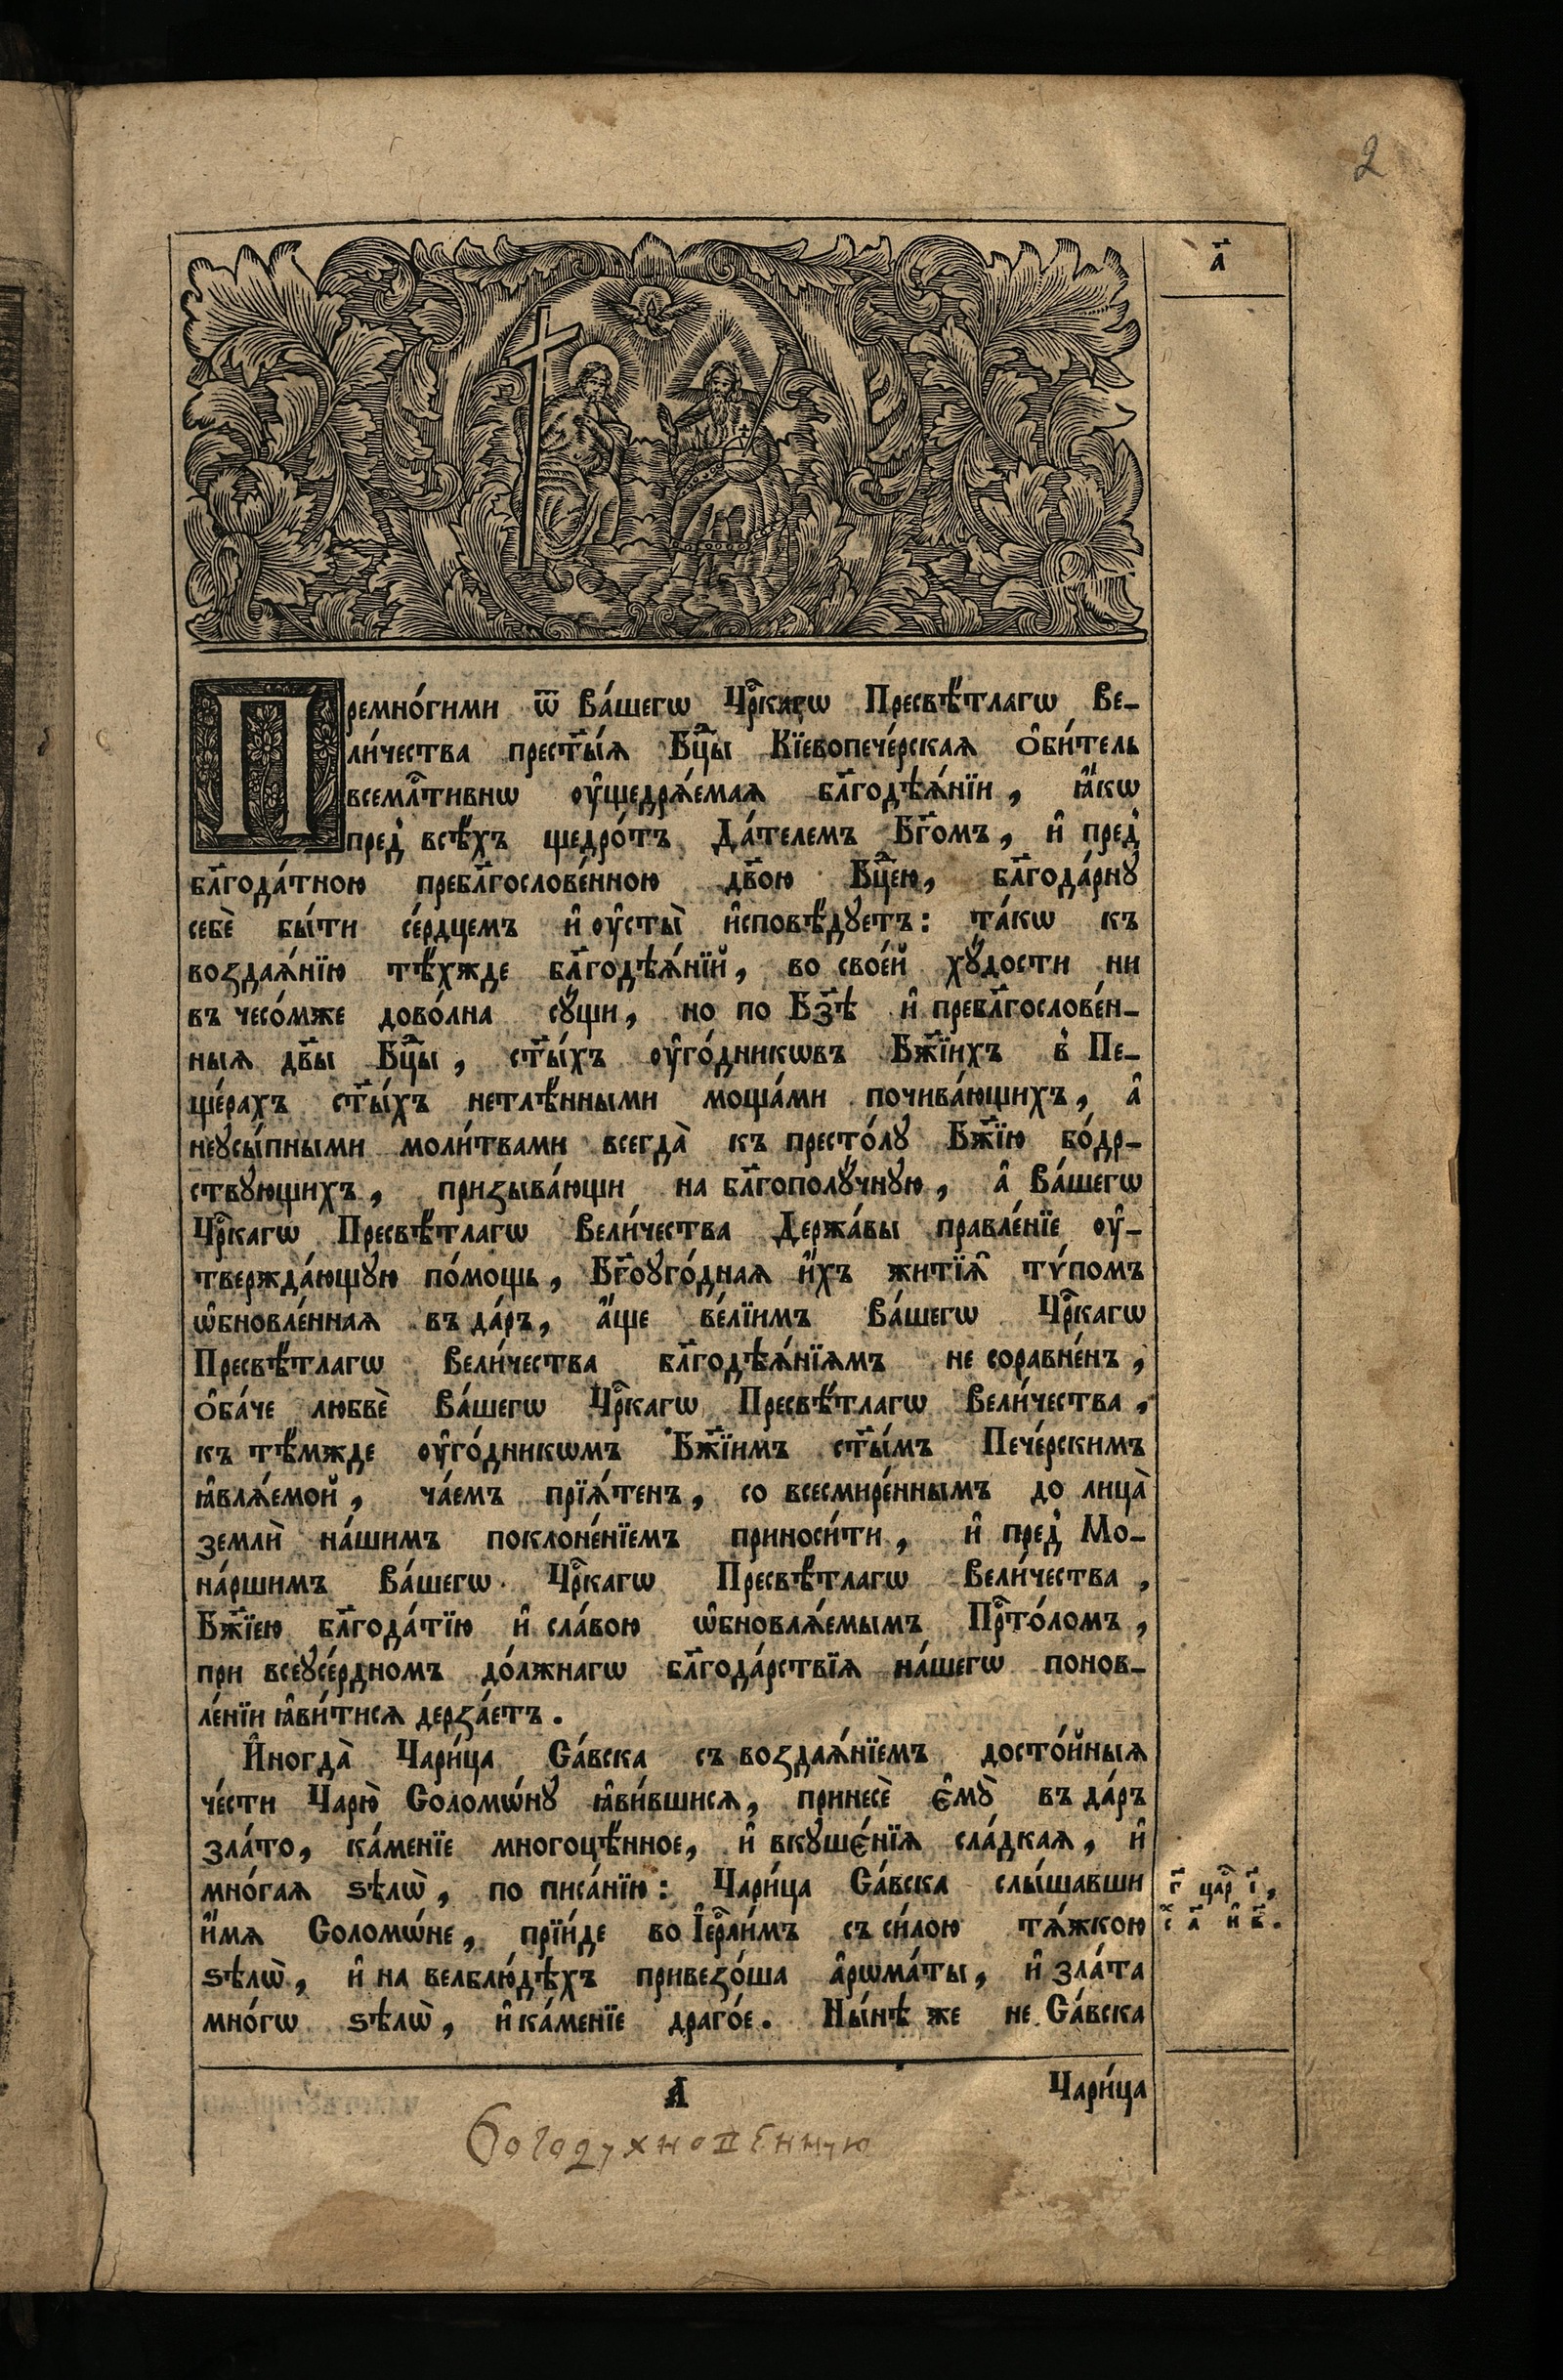 2
а҃
Премно́гими ѿ Ва́шегѡ Цр҇кагѡ Пресвѣ́тлагѡ Ве-
ли́чества прест҃ы́ѧ Бц҃ы Кїевопече́рскаѧ ѻ҆би́тель
всемлⷭ҇тивнѡ ᲂу҆щедрѧ́емаѧ бл҃годѣѧ́нїи, ꙗ҆́кѡ
пред̾ всѣ́хъ щедро́тъ Да́телемъ Бг҃омъ, и҆ пред̾
бл҃года́тною пребл҃гослове́нною дв҃ою Бц҃ею, бл҃года́рнꙋ
себѐ бы́ти се́рдцемъ и҆ ᲂу҆сты̀ и҆сповѣ́дꙋетъ: та́кѡ къ
воздаѧ́нїю тѣ́хжде бл҃годѣѧ́нїй, во свое́й хꙋ́дости ни
въ чесо́мже дово́лна сꙋ́щи, но по Бз҃ѣ и҆ пребл҃гослове́н-
ныѧ дв҃ы Бц҃ы, ст҃ы́хъ ᲂу҆го́дникѡвъ Бж҃їихъ в̾ Пе-
ще́рахъ ст҃ы́хъ нетлѣ́нными моща́ми почива́ющихъ, а҆
неꙋсы́пными моли́твами всегда̀ къ престо́лꙋ Бж҃їю бо́др-
ствꙋющихъ, призыва́ющи на бл҃гополꙋ́чнꙋю, а҆ Ва́шегѡ
Цр҇кагѡ Пресвѣ́тлагѡ Вели́чества Держа́вы правле́нїе ᲂу҆-
твержда́ющꙋю по́мощь, Бг҃оꙋго́днаѧ и҆́хъ житїѧ҄ тѵ́помъ
ѡ҆бновле́ннаѧ въ да́ръ, а҆́ще ве́лїимъ Ва́шегѡ Цр҇кагѡ
Пресвѣ́тлагѡ Вели́чества бл҃годѣѧ́нїѧмъ не соравне́нъ,
ѻ҆ба́че любвѐ Ва́шегѡ Цр҇кагѡ Пресвѣ́тлагѡ Вели́чества,
къ тѣ́мжде ᲂу҆го́дникѡмъ Бж҃їимъ ст҃ы́мъ Пече́рскимъ
ꙗ҆влѧ́емой, ча́емъ прїѧ́тенъ, со всесмире́ннымъ до лица̀
землѝ на́шимъ поклоне́нїемъ приноси́ти, и҆ пред̾ Мо-
на́ршимъ Ва́шегѡ Цр҇кагѡ Пресвѣ́тлагѡ Вели́чества,
Бж҃їею бл҃года́тїю и҆ сла́вою ѡ҆бновлѧ́емымъ Пр҇то́ломъ,
при всеꙋсе́рдномъ до́лжнагѡ бл҃года́рствїѧ на́шегѡ понов-
ле́нїи ꙗ҆ви́тисѧ дерза́етъ.
И҆ногда̀ Цари́ца Са́вска съ воздаѧ́нїемъ досто́йныѧ
че́сти Царю̀ Соломѡ́нꙋ ꙗ҆ви́вшисѧ, принесѐ є҆мꙋ̀ въ да́ръ
зла́то, ка́менїе многоцѣ́нное, и҆ вкꙋшє́нїѧ сла́дкаѧ, и҆
мно́гаѧ ѕѣлѡ̀, по писа́нїю: Цари́ца Са́вска слы́шавши
и҆́мѧ Соломѡ́не, прїи́де во І҆ер҇ли́мъ съ си́лою тѧ́жкою
г҃ цар҇ і҃,
с҇ а҃ и҆ в҃.
ѕѣлѡ̀, и҆ на велблю́дѣхъ привезо́ша а҆рѡма́ты, и҆ зла́та
мно́гѡ ѕѣлѡ̀, и҆ ка́менїе драго́е. Ны́нѣ же не Са́вска
А
Цари́ца
богодухноценную